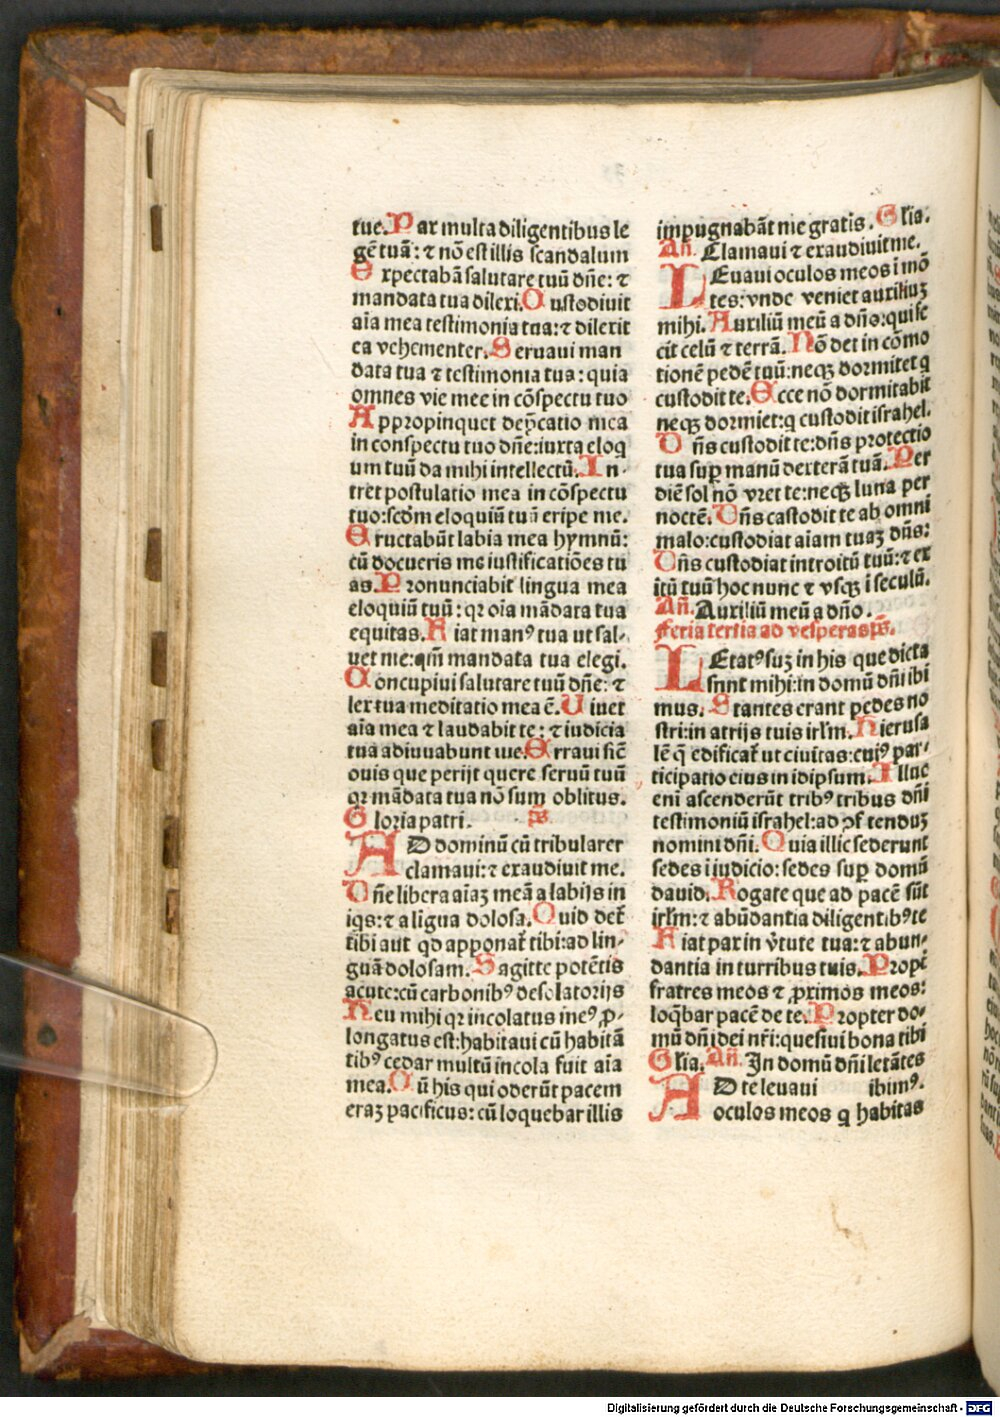 tue. Pax multa diligentibus le
gẽ tuã: ⁊ nõ est illis scandalum
Expectabã salutare tuũ dñe: ⁊
mandata tua dilexi. Custodiuit
aĩa mea testimonia tua: ⁊ dilexit
ea vehementer. Seruaui man
data tua ⁊ testimonia tua: quia
omnes vie mee in cõspectu tuo
Appropinquet dep̃catio mea
in conspectu tuo dñe: iuxta eloq
um tuũ da mihi intellectũ. In-
tret postulatio mea in cõspectu
tuo: scd̃m eloquiũ tuũ eripe me.
Eructabũt labia mea hymnũ:
cũ docueris me iustificatiões tu
as. Pronunciabit lingua mea
eloquiũ tuũ: qr oĩa mãdata tua
equitas. Fiat manꝰ tua ut sal-
uet me: qm̃ mandata tua elegi.
Concupiui salutare tuũ dñe: ⁊
lex tua meditatio mea ẽ. Uiuet
aĩa mea ⁊ laudabit te: ⁊ iudicia
tua adiuuabunt me. Erraui sic̃
ouis que perijt quere seruũ tuũ
qr mãdata tua nõ sum oblitus.
Gloria patri. ps̃
AD dominũ cũ tribularer
clamaui: ⁊ exaudiuit me.
Dñe libera aĩaꝫ meã a labijs in
iqs: ⁊ a lĩgua dolosa. Quid det᷑
tibi aut qd apponat᷑ tibi: ad lin-
guã dolosam. Sagitte potẽtis
acute: cũ carbonibꝰ desolatorijs
Heu mihi qr incolatus meꝰ ꝓ-
longatus est: habitaui cũ habitã
tibꝰ cedar multũ incola fuit aĩa
mea. Cũ his qui oderũt pacem
eraꝫ pacificus: cũ loquebar illis
impugnabãt me gratis. Glĩa.
Añ. Clamaui ⁊ exaudiuit me.
LEuaui oculos meos ĩ mõ
tes: vnde veniet auxiliuꝫ
mihi. Auxiliũ meũ a dño: qui fe
cit celũ ⁊ terrã. Nõ det in cõmo
tionẽ pedẽ tuũ: neqꝫ dormitet q
custodit te. Ecce nõ dormitabit
neqꝫ dormiet: q custodit israhel.
Dñs custodit te: dñs protectio
tua suꝑ manũ dexterã tuã. Per
diẽ sol nõ vret te: neqꝫ luna per
noctẽ. Dñs castodit te ab omni
malo: custodiat aĩam tuaꝫ dñs:
Dñs custodiat introitũ tuũ: ⁊ ex
itũ tuũ hoc nunc ⁊ vsqꝫ ĩ seculũ.
Añ. Auxiliũ meũ a dño.
Feria tertia ad vesperas ps̃.
LEtatꝰ suꝫ in his que dicta
snnt mihi: in domũ dñi ibi
mus. Stantes erant pedes no
stri: in atrijs tuis irl̃m. Hierusa
lẽ q̃ edificat᷑ ut ciuitas: cuiꝰ par-
ticipatio eius in idipsum. Illuc
eni ascenderũt tribꝰ tribus dñi
testimoniũ israhel: ad ꝯfitenduꝫ
nomini dñi. Quia illic sederunt
sedes ĩ iudicio: sedes suꝑ domũ
dauid. Rogate que ad pacẽ sũt
irl̃m: ⁊ abũdantia diligentibꝰ te
Fiat pax in v̾tute tua: ⁊ abun-
dantia in turribus tuis. Propt̾
fratres meos ⁊ ꝓximos meos:
loq̃bar pacẽ de te. Propter do-
mũ dñi dei nr̃i: quesiui bona tibi
Glĩa. Añ. In domũ dñi letãtes
AD te leuaui ibimꝰ.
oculos meos q habitas
Digitalisierung gefördert durch die Deutsche Forschungsgemeinschaft - DFG